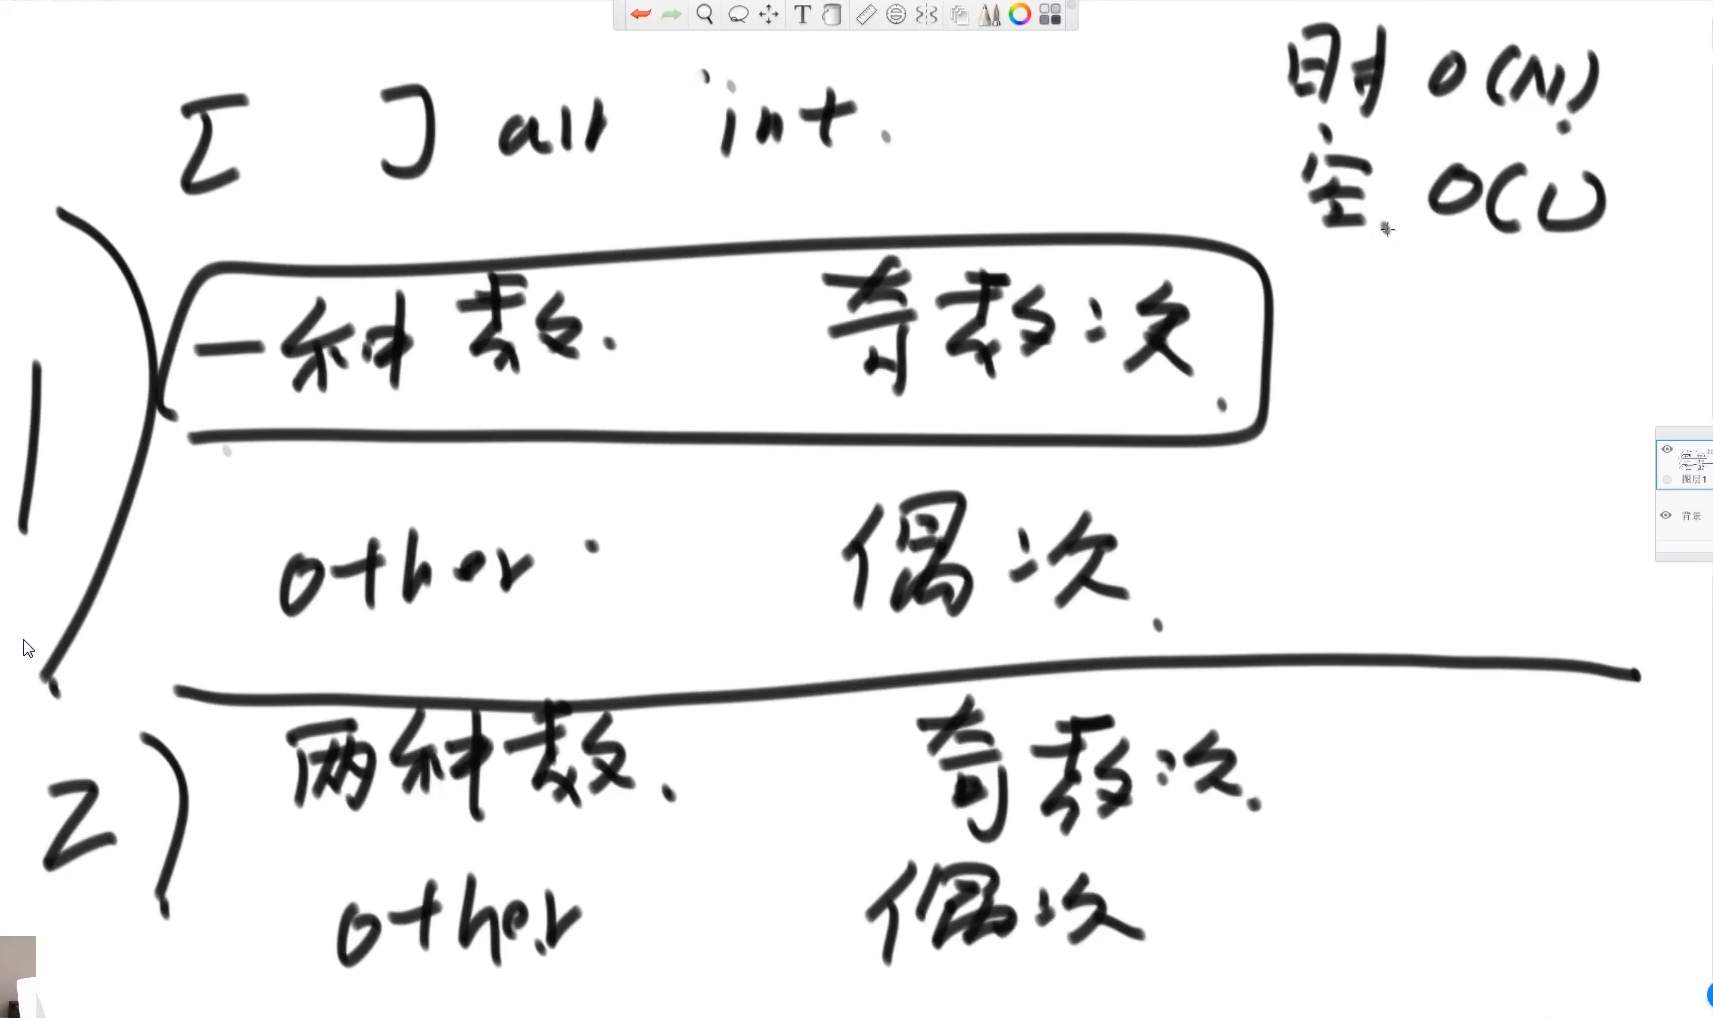 [ ] all int.
时 O(N)
空 O(1)
1)
一种数. 奇数次.
other. 偶次.
2)
两种数. 奇数次.
other 偶次
图层1
背景